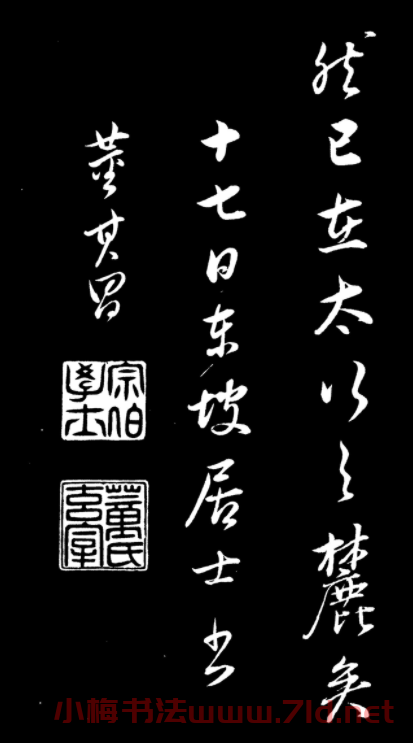 然已在太行之麓矣
十七日東坡居士書
董其昌
宗伯學士
董氏玄宰
小梅书法www.7ld.net